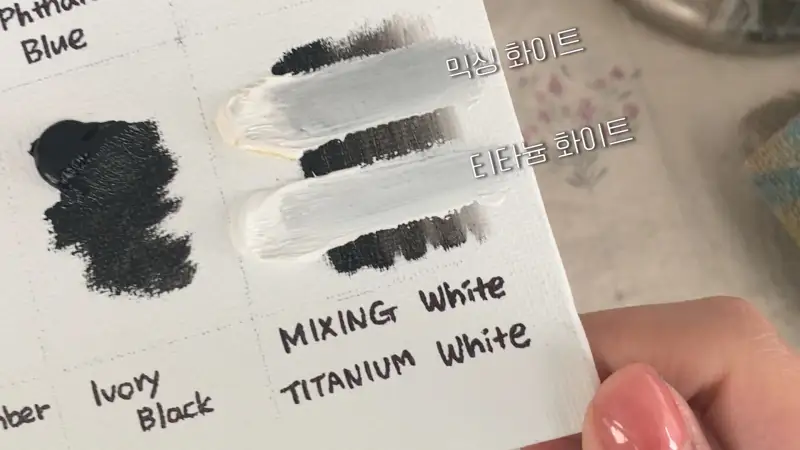 Phthal
Blue
믹싱 화이트
티타늄 화이트
MIXING White
TITANIUM White
Ivory
Black
mber